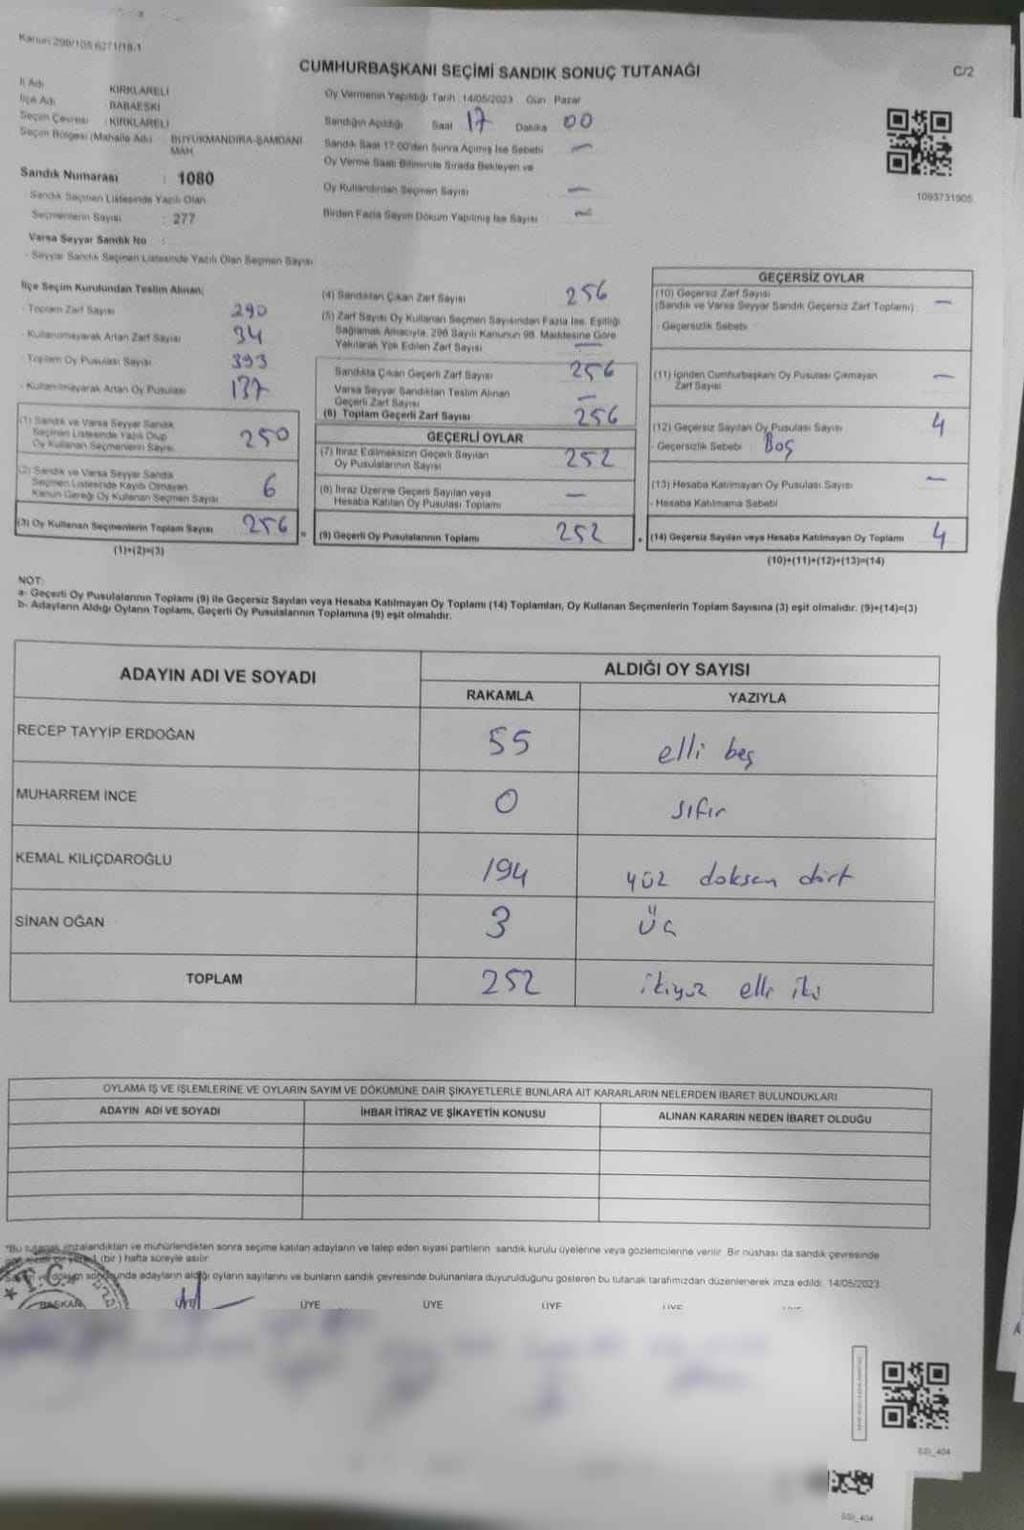 Kanun 298/105 6271/18-1
CUMHURBAŞKANI SEÇİMİ SANDIK SONUÇ TUTANAĞI
C/2
İl Adı : KIRKLARELİ
İlçe Adı : BABAESKİ
Seçim Çevresi : KIRKLARELİ
Seçim Bölgesi (Mahalle Adı) : BÜYÜKMANDIRA-SAMDANI MAH.
Sandık Numarası : 1080
Sandık Seçmen Listesinde Yazılı Olan
Seçmenlerin Sayısı : 277
Varsa Seyyar Sandık No :
- Seyyar Sandık Seçmen Listesinde Yazılı Olan Seçmen Sayısı
Oy Vermenin Yapıldığı Tarih : 14/05/2023 Gün : Pazar
Sandığın Açıldığı Saat 17 Dakika 00
Sandık Saat 17:00'den Sonra Açılmış İse Sebebi —
Oy Verme Saati Bitiminde Sırada Bekleyen ve
Oy Kullandırılan Seçmen Sayısı —
Birden Fazla Sayım Döküm Yapılmış İse Sayısı —
1093731905
İlçe Seçim Kurulundan Teslim Alınan;
- Toplam Zarf Sayısı 290
- Kullanılmayarak Artan Zarf Sayısı 34
- Toplam Oy Pusulası Sayısı 393
- Kullanılmayarak Artan Oy Pusulası 137
(1) Sandık ve Varsa Seyyar Sandık
Seçmen Listesinde Yazılı Olup
Oy Kullanan Seçmenlerin Sayısı 250
(2) Sandık ve Varsa Seyyar Sandık
Seçmen Listesinde Kayıtlı Olmayan
Kanun Gereği Oy Kullanan Seçmen Sayısı 6
(3) Oy Kullanan Seçmenlerin Toplam Sayısı 256 =
(1)+(2)=(3)
(4) Sandıktan Çıkan Zarf Sayısı 256
(5) Zarf Sayısı Oy Kullanan Seçmen Sayısından Fazla İse, Eşitliği
Sağlamak Amacıyla, 298 Sayılı Kanunun 98. Maddesine Göre
Yakılarak Yok Edilen Zarf Sayısı —
Sandıkta Çıkan Geçerli Zarf Sayısı 256
Varsa Seyyar Sandıktan Teslim Alınan
Geçerli Zarf Sayısı —
(6) Toplam Geçerli Zarf Sayısı 256
GEÇERLİ OYLAR
(7) İtiraz Edilmeksizin Geçerli Sayılan
Oy Pusulalarının Sayısı 252
(8) İtiraz Üzerine Geçerli Sayılan veya
Hesaba Katılan Oy Pusulası Toplamı —
(9) Geçerli Oy Pusulalarının Toplamı 252 +
GEÇERSİZ OYLAR
(10) Geçersiz Zarf Sayısı
(Sandık ve Varsa Seyyar Sandık Geçersiz Zarf Toplamı) —
- Geçersizlik Sebebi
(11) İçinden Cumhurbaşkanı Oy Pusulası Çıkmayan
Zarf Sayısı —
(12) Geçersiz Sayılan Oy Pusulası Sayısı 4
- Geçersizlik Sebebi Boş
(13) Hesaba Katılmayan Oy Pusulası Sayısı —
- Hesaba Katılmama Sebebi
(14) Geçersiz Sayılan veya Hesaba Katılmayan Oy Toplamı 4
(10)+(11)+(12)+(13)=(14)
NOT:
a- Geçerli Oy Pusulalarının Toplamı (9) ile Geçersiz Sayılan veya Hesaba Katılmayan Oy Toplamı (14) Toplamları, Oy Kullanan Seçmenlerin Toplam Sayısına (3) eşit olmalıdır. (9)+(14)=(3)
b- Adayların Aldığı Oyların Toplamı, Geçerli Oy Pusulalarının Toplamına (9) eşit olmalıdır.
ADAYIN ADI VE SOYADI
ALDIĞI OY SAYISI
RAKAMLA YAZIYLA
RECEP TAYYİP ERDOĞAN 55 elli beş
MUHARREM İNCE 0 sıfır
KEMAL KILIÇDAROĞLU 194 yüz doksan dört
SİNAN OĞAN 3 üç
TOPLAM 252 ikiyüz elli iki
OYLAMA İŞ VE İŞLEMLERİNE VE OYLARIN SAYIM VE DÖKÜMÜNE DAİR ŞİKAYETLERLE BUNLARA AİT KARARLARIN NELERDEN İBARET BULUNDUKLARI
ADAYIN ADI VE SOYADI İHBAR İTİRAZ VE ŞİKAYETİN KONUSU ALINAN KARARIN NEDEN İBARET OLDUĞU
*Bu tutanak imzalandıktan ve mühürlendikten sonra seçime katılan adayların ve talep eden siyasi partilerin sandık kurulu üyelerine veya gözlemcilerine verilir. Bir nüshası da sandık çevresinde
(bir) hafta süreyle asılır.
ve döküm sonunda adayların aldığı oyların sayılarını ve bunların sandık çevresinde bulunanlara duyurulduğunu gösteren bu tutanak tarafımızdan düzenlenerek imza edildi. 14/05/2023
T.C.
BAŞKAN ÜYE ÜYE ÜYE
SSI_404
SSI_404